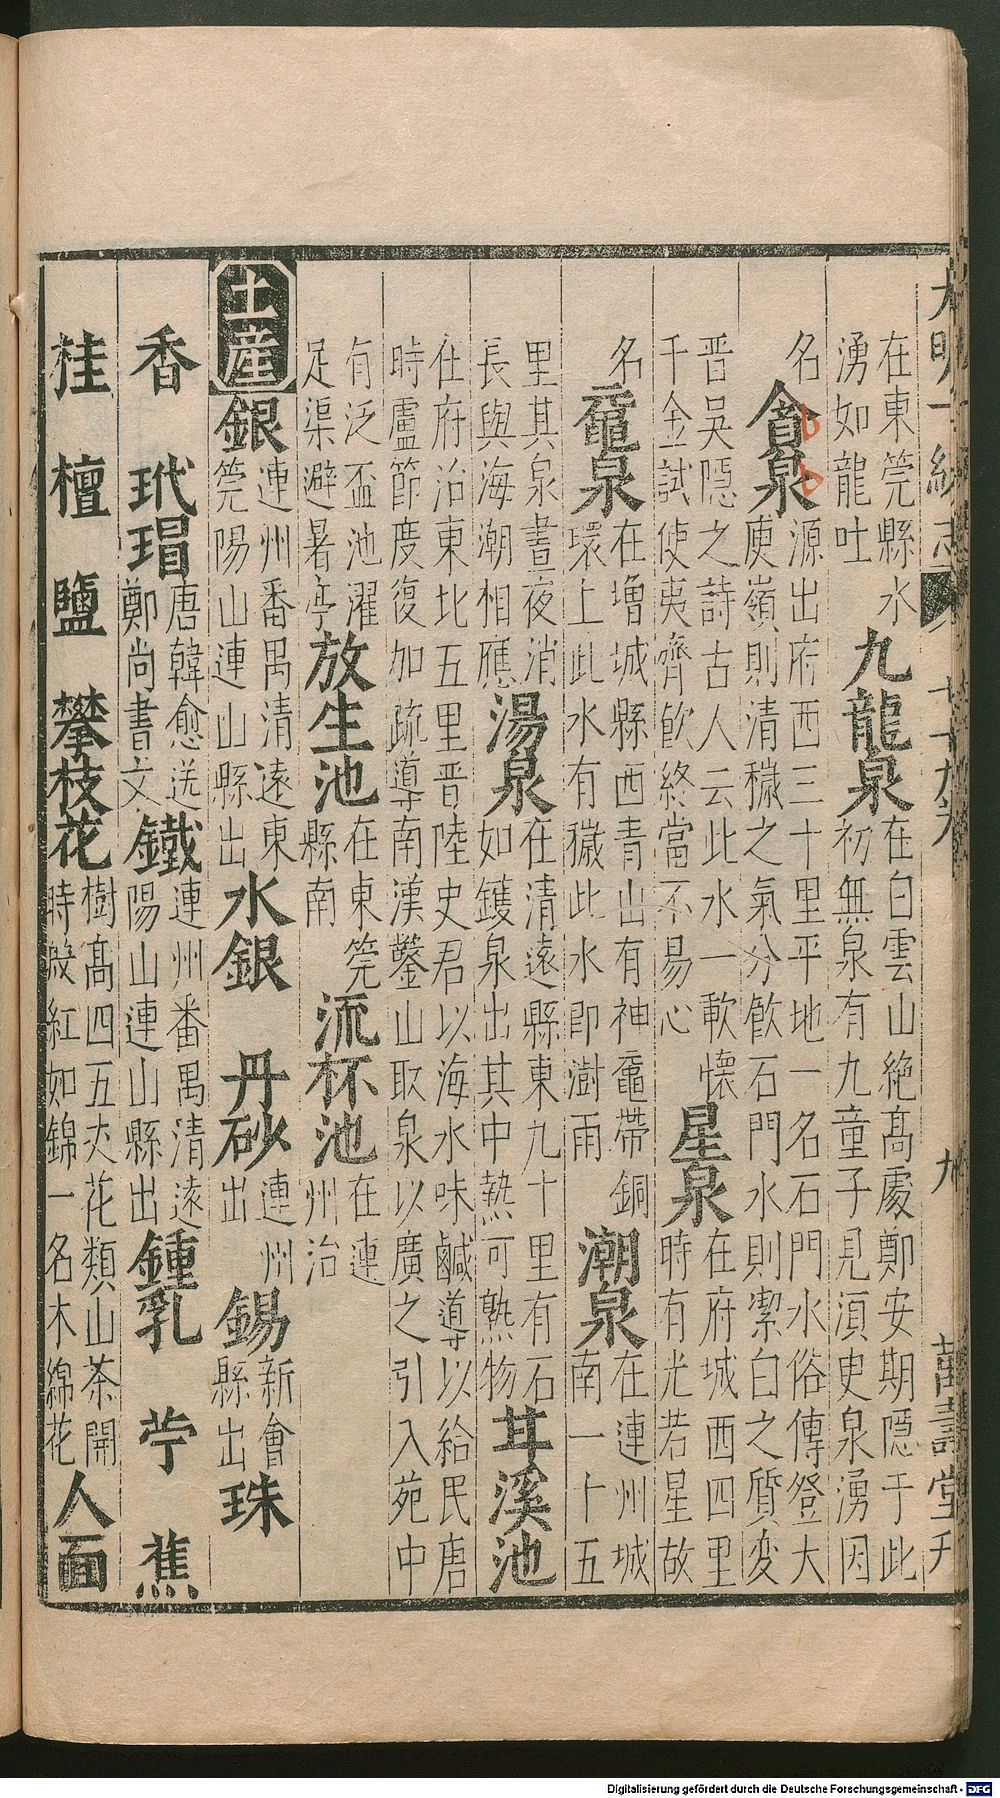 大明一統志 七十九 九 萬壽堂刊
在東筦縣水
湧如龍吐
九龍泉
在白雲山絶髙處鄭安期隱于此
初無泉有九童子見湏史泉湧因
名
貪泉
源出府西三十里平地一名石門水俗傳登大
庾嶺則清穢之氣分飲石門水則潔白之質変
晋吳隱之詩古人云此水一軟懷
千金試使夷齊飲終當不易心
星泉
在府城西四里
時有光若星故
名
黿泉
在増城縣西青山有神黿帶銅
環上此水有此水即澍雨
潮泉
在連州城
南一十五
里其泉晝夜消
長與海潮相應
湯泉
在清遠縣東九十里有石
如鑊泉出其中熱可熟物
甘溪池
在府治東北五里晋陸史君以海水味鹹導以給民唐
時盧節度復加疏導南漢鑿山取泉以廣之引入苑中
有泛盃池濯
足渠避暑亭
放生池
在東筦
縣南
流杯池
在連
州治
土産
銀
連州番禺清遠東
筦陽山連山縣出
水銀 丹砂
連州
出
錫
新會
縣出
珠
香 玳瑁
唐韓愈送
鄭尚書文
鐵
連州番禺清遠
陽山連山縣出
鍾乳 苧 蕉
桂 檀 鹽 攀枝花
樹髙四五丈花類山茶開
時殷紅如錦一名木綿花
人面
Digitalisierung gefördert durch die Deutsche Forschungsgemeinschaft - DFG